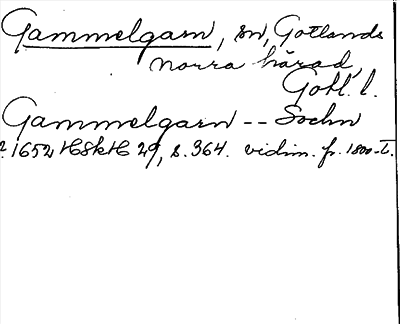 Gammelgarn, sn, Gotlands
norra härad,
Gotl. l.
Gammelgarn -- Sochn
1652 HSkH 29, s. 364. vidim. fr. 1800-t.